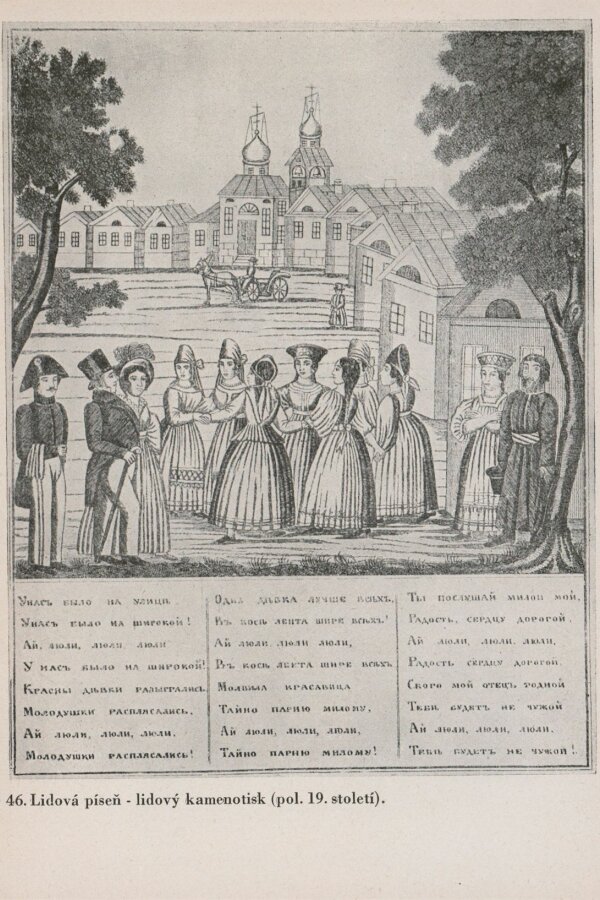 Унасъ было на улицѣ
Унасъ было на широкой!
Ай, люли, люли, люли
У насъ было на широкой!
Красны дѣвки разыгрались.
Молодушки расплясались.
Ай люли, люли, люли.
Молодушки расплясались!
Одна дѣвка лучше всѣхъ,
Въ косѣ лента шире всѣхъ!
Ай люли люли люли,
Въ косѣ лента шире всѣхъ
Молвила красавица
Тайно парню милому,
Ай люли, люли, люли.
Тайно парню милому!
Ты послушай милой мой,
Радость, сердцу дорогой,
Ай люли, люли, люли,
Радость сердцу дорогой.
Скоро мой отецъ родной
Тебѣ будетъ не чужой
Ай люли, люли, люли.
Тебѣ будетъ не чужой!
46. Lidová píseň - lidový kamenotisk (pol. 19. století).